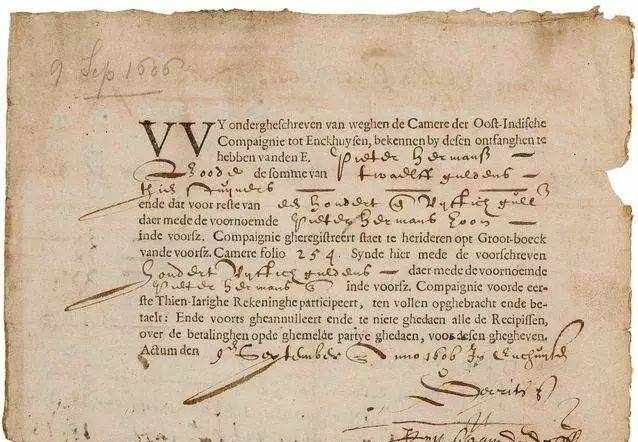 9 Sep 1606
VVY ondergheschreven van weghen de Camere der Oost-Indische
Compaignie tot Enckhuysen, bekennen by desen ontfanghen te
hebben vanden E. Pieter Hermansz
de somme van twaelff guldens
thien stuyvers
ende dat voor reste van hondert Vyftich gull
daer mede de voornoemde Pieter Hermans zoon
inde voorsz. Compaignie gheregistreert staet te herideren opt Groot-boeck
vande voorsz. Camere folio 254. Synde hier mede de voorschreven
hondert Vyftich guldens daer mede de voornoemde
Pieter Hermans inde voorsz. Compaignie voorde eer-
ste Thien-Iarighe Rekeninghe participeert, ten vollen opghebracht ende be-
taelt: Ende voorts gheannulleert ende te niete ghedaen alle de Recipissen,
over de betalinghen opde ghemelde partye ghedaen, voor desen ghegheven.
Actum den 9en September Anno 1606 In Enchuysen